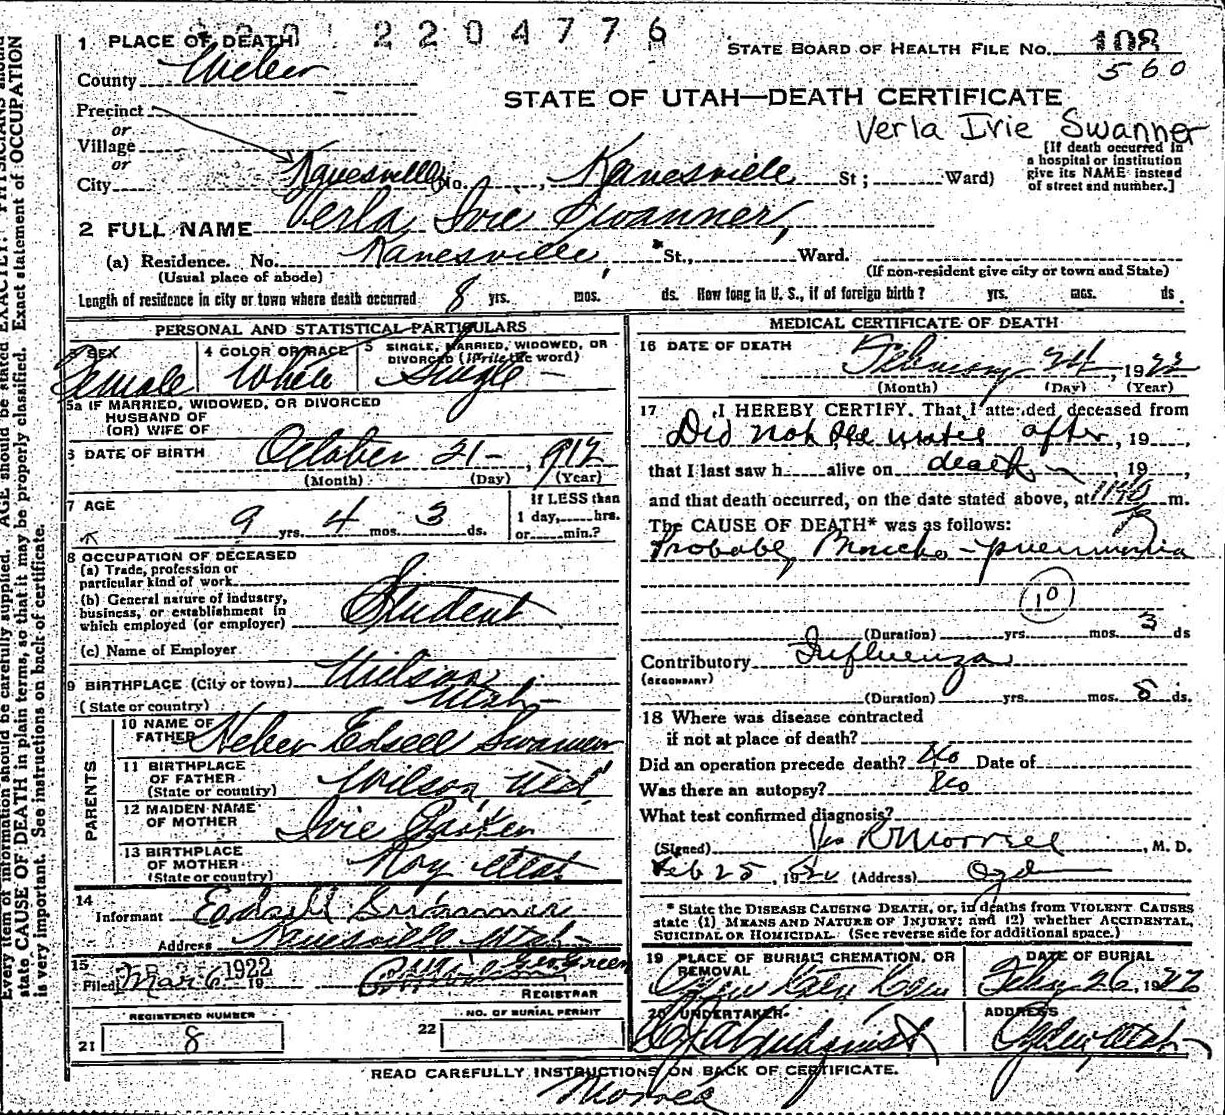 2204776
1 PLACE OF DEATH
STATE BOARD OF HEALTH FILE No. 108
560
County Weber
STATE OF UTAH—DEATH CERTIFICATE
Precinct
Verla Ivie Swanner
or
Village
[If death occurred in
a hospital or institution
give its NAME instead
of street and number.]
or
City Kanesville (No. , Kanesville St; Ward)
2 FULL NAME Verla Ivie Swanner,
(a) Residence. No. Kanesville, St., Ward.
(Usual place of abode) (If non-resident give city or town and State)
Length of residence in city or town where death occurred 8 yrs. mos. ds. How long in U. S., if of foreign birth? yrs. mos. ds.
PERSONAL AND STATISTICAL PARTICULARS
3 SEX 4 COLOR OR RACE 5 SINGLE, MARRIED, WIDOWED, OR
DIVORCED (Write the word)
Female White Single -
5a IF MARRIED, WIDOWED, OR DIVORCED
HUSBAND OF
(OR) WIFE OF
6 DATE OF BIRTH October 21-, 1912
(Month) (Day) (Year)
7 AGE 9 yrs. 4 mos. 3 ds.
If LESS than
1 day, hrs.
or min.?
8 OCCUPATION OF DECEASED
(a) Trade, profession or
particular kind of work
(b) General nature of industry,
business, or establishment in
which employed (or employer) Student
(c) Name of Employer
9 BIRTHPLACE (City or town) Wilson
(State or country) Utah-
PARENTS
10 NAME OF
FATHER Heber Edsell Swanner
11 BIRTHPLACE
OF FATHER
(State or country) Wilson, Utah
12 MAIDEN NAME
OF MOTHER Ivie
13 BIRTHPLACE
OF MOTHER
(State or country) Roy Utah
14
Informant Swanner
Address Kanesville Utah-
15
Filed Mar 6 1922 19
Geo. Green
REGISTRAR
REGISTERED NUMBER
21 8
NO. OF BURIAL PERMIT
22
MEDICAL CERTIFICATE OF DEATH
16 DATE OF DEATH February 24, 1922
(Month) (Day) (Year)
17 I HEREBY CERTIFY, That I attended deceased from
Did not see until after, 19 ,
that I last saw h alive on death , 19 ,
and that death occurred, on the date stated above, at 1140 m.
The CAUSE OF DEATH* was as follows:
Probably Broncho-pneumonia
10
(Duration) yrs. mos. 3 ds
Contributory Influenza
(SECONDARY)
(Duration) yrs. mos. 5 ds.
18 Where was disease contracted
if not at place of death?
Did an operation precede death? No Date of
Was there an autopsy? No
What test confirmed diagnosis?
(Signed) Morrell, M. D.
Feb 25, 192 (Address) Ogd
* State the DISEASE CAUSING DEATH, or, in deaths from VIOLENT CAUSES
state (1) MEANS AND NATURE OF INJURY; and (2) whether ACCIDENTAL,
SUICIDAL OR HOMICIDAL. (See reverse side for additional space.)
19 PLACE OF BURIAL, CREMATION, OR
REMOVAL
Ogden City Cem
DATE OF BURIAL
Feby 26, 1922
20 UNDERTAKER
Lindquist
ADDRESS
Ogden, Utah
READ CAREFULLY INSTRUCTIONS ON BACK OF CERTIFICATE.
Morrell
Every item of information should be carefully supplied. AGE should be stated EXACTLY. PHYSICIANS should
state CAUSE OF DEATH in plain terms, so that it may be properly classified. Exact statement of OCCUPATION
is very important. See instructions on back of certificate.